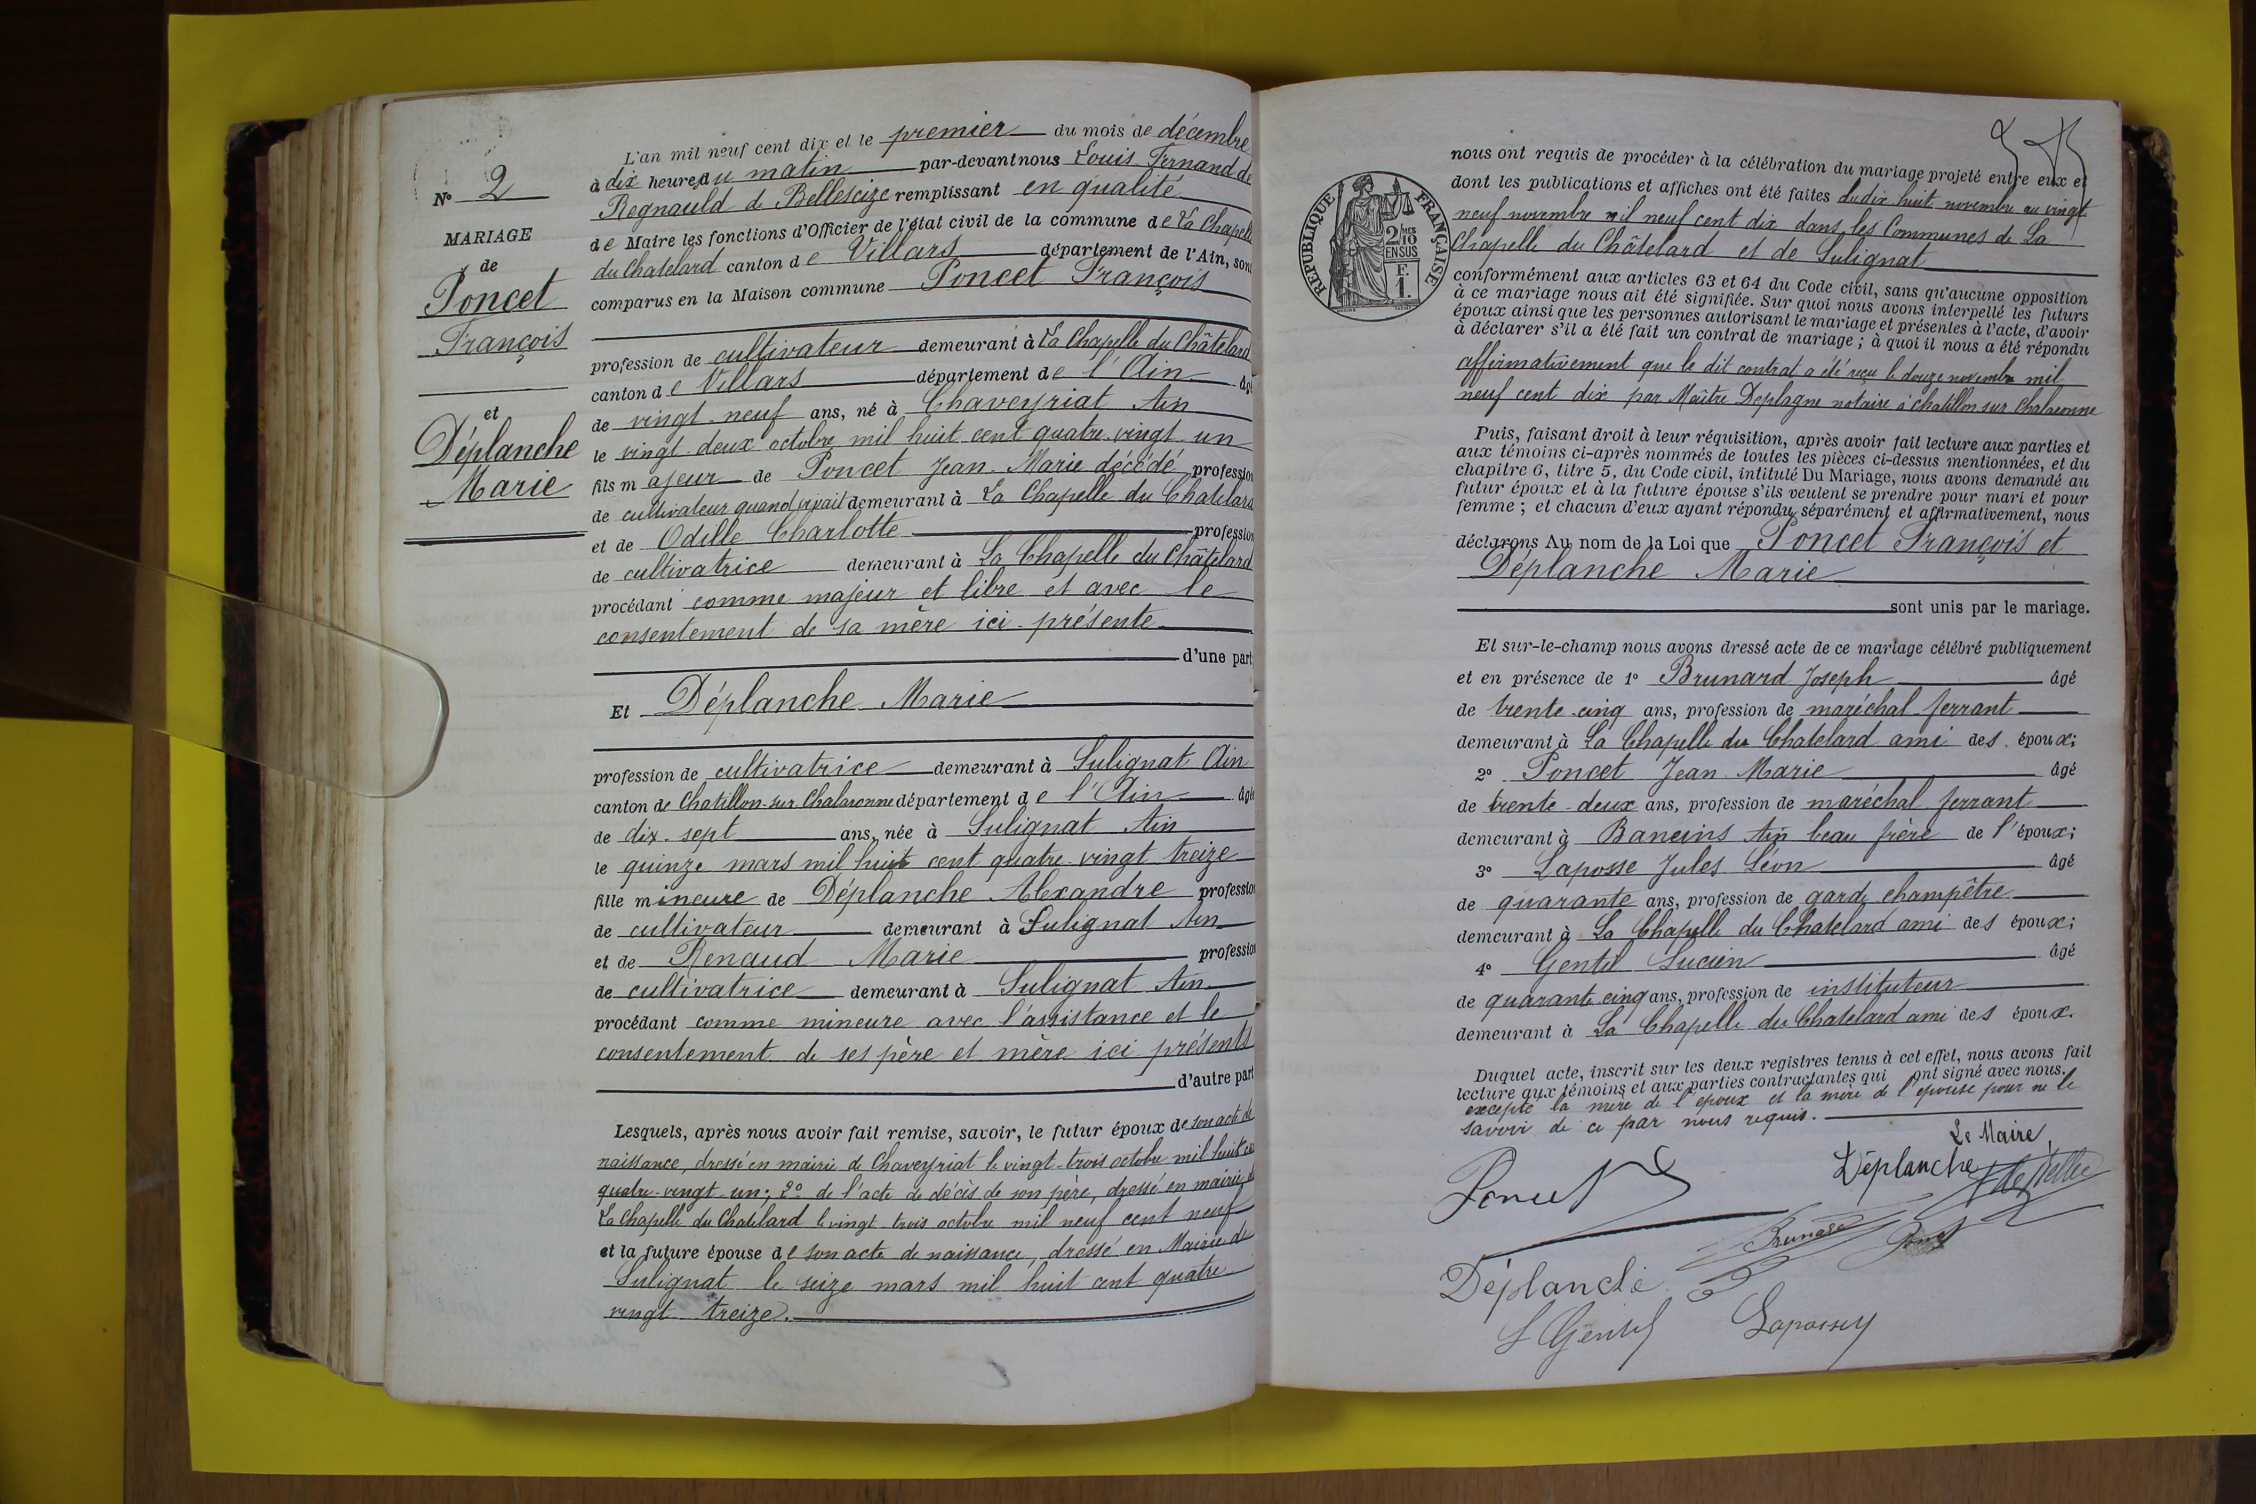 N° 2
MARIAGE
de
Poncet
François
et
Déplanche
Marie
L'an mil neuf cent dix et le premier du mois de décembre
à dix heures du matin par-devant nous Louis Fernand de
Regnauld de Bellescize remplissant en qualité
de Maire les fonctions d'Officier de l'état civil de la commune de La Chapelle
du Chatelard canton de Villars département de l'Ain, sont
comparus en la Maison commune Poncet François
profession de cultivateur demeurant à La Chapelle du Châtelard
canton de Villars département de l'Ain âgé
de vingt-neuf ans, né à Chaveyriat Ain
le vingt-deux octobre mil huit cent quatre-vingt-un
fils majeur de Poncet Jean-Marie décédé profession
de cultivateur quand vivait demeurant à La Chapelle du Chatelard
et de Odille Charlotte profession
de cultivatrice demeurant à La Chapelle du Châtelard
procédant comme majeur et libre et avec le
consentement de sa mère ici-présente
d'une part
Et Déplanche Marie
profession de cultivatrice demeurant à Sulignat Ain
canton de Chatillon-sur-Chalaronne département de l'Ain âgée
de dix-sept ans, née à Sulignat Ain
le quinze mars mil huit cent quatre-vingt treize
fille mineure de Déplanche Alexandre profession
de cultivateur demeurant à Sulignat Ain
et de Renaud Marie profession
de cultivatrice demeurant à Sulignat Ain
procédant comme mineure avec l'assistance et le
consentement de ses père et mère ici présents
d'autre part
Lesquels, après nous avoir fait remise, savoir, le futur époux de son acte de
naissance, dressé en mairie de Chaveyriat le vingt-trois octobre mil huit cent
quatre-vingt-un; 2° de l'acte de décès de son père, dressé en mairie de
La Chapelle du Chatelard le vingt-trois octobre mil neuf cent neuf
et la future épouse de son acte de naissance, dressé en Mairie de
Sulignat le seize mars mil huit cent quatre
vingt treize.
RÉPUBLIQUE FRANÇAISE
2/10 EN SUS
F. 1.
nous ont requis de procéder à la célébration du mariage projeté entre eux et
dont les publications et affiches ont été faites du dix huit novembre au vingt
neuf novembre mil neuf cent dix dans les Communes de La
Chapelle du Châtelard et de Sulignat
conformément aux articles 63 et 64 du Code civil, sans qu'aucune opposition
à ce mariage nous ait été signifiée. Sur quoi nous avons interpellé les futurs
époux ainsi que les personnes autorisant le mariage et présentes à l'acte, d'avoir
à déclarer s'il a été fait un contrat de mariage; à quoi il nous a été répondu
affirmativement que le dit contrat a été reçu le douze novembre mil
neuf cent dix par Maître Deplagne notaire à Chatillon sur Chalaronne
Puis, faisant droit à leur réquisition, après avoir fait lecture aux parties et
aux témoins ci-après nommés de toutes les pièces ci-dessus mentionnées, et du
chapitre 6, titre 5, du Code civil, intitulé Du Mariage, nous avons demandé au
futur époux et à la future épouse s'ils veulent se prendre pour mari et pour
femme; et chacun d'eux ayant répondu séparément et affirmativement, nous
déclarons Au nom de la Loi que Poncet François et
Déplanche Marie
sont unis par le mariage.
Et sur-le-champ nous avons dressé acte de ce mariage célébré publiquement
et en présence de 1° Brunard Joseph âgé
de trente-cinq ans, profession de maréchal-ferrant
demeurant à La Chapelle du Chatelard ami des époux;
2° Poncet Jean-Marie âgé
de trente-deux ans, profession de maréchal ferrant
demeurant à Baneins Ain beau frère de l'époux;
3° Laposse Jules Léon âgé
de quarante ans, profession de garde champêtre
demeurant à La Chapelle du Chatelard ami des époux;
4° Gentil Lucien âgé
de quarante-cinq ans, profession de instituteur
demeurant à La Chapelle du Chatelard ami des époux.
Duquel acte, inscrit sur les deux registres tenus à cet effet, nous avons fait
lecture aux témoins et aux parties contractantes qui ont signé avec nous.
excepté la mère de l'époux et la mère de l'épouse pour ne le
savoir de ce par nous requis.
Le Maire,
Poncet
Déplanche
Brunard
Poncet
Déplanche
L Gentil